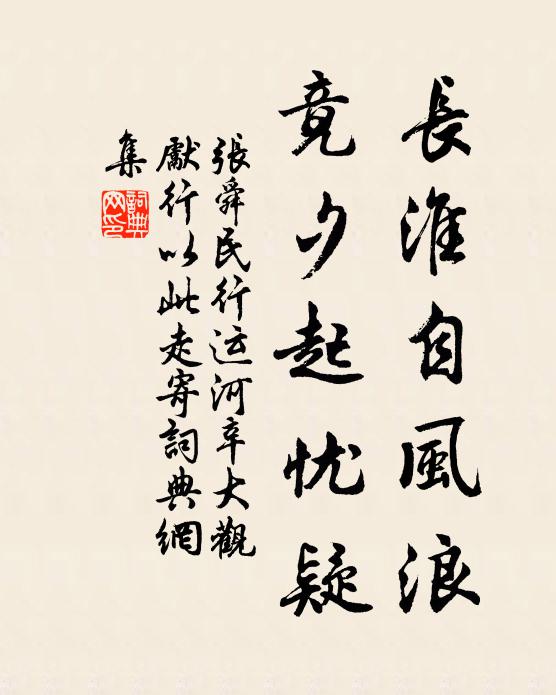 長淮自風浪
竟夕起忧疑
張舜民行运河辛大觀
獻行以此走寄詞典網
集
詞典网印